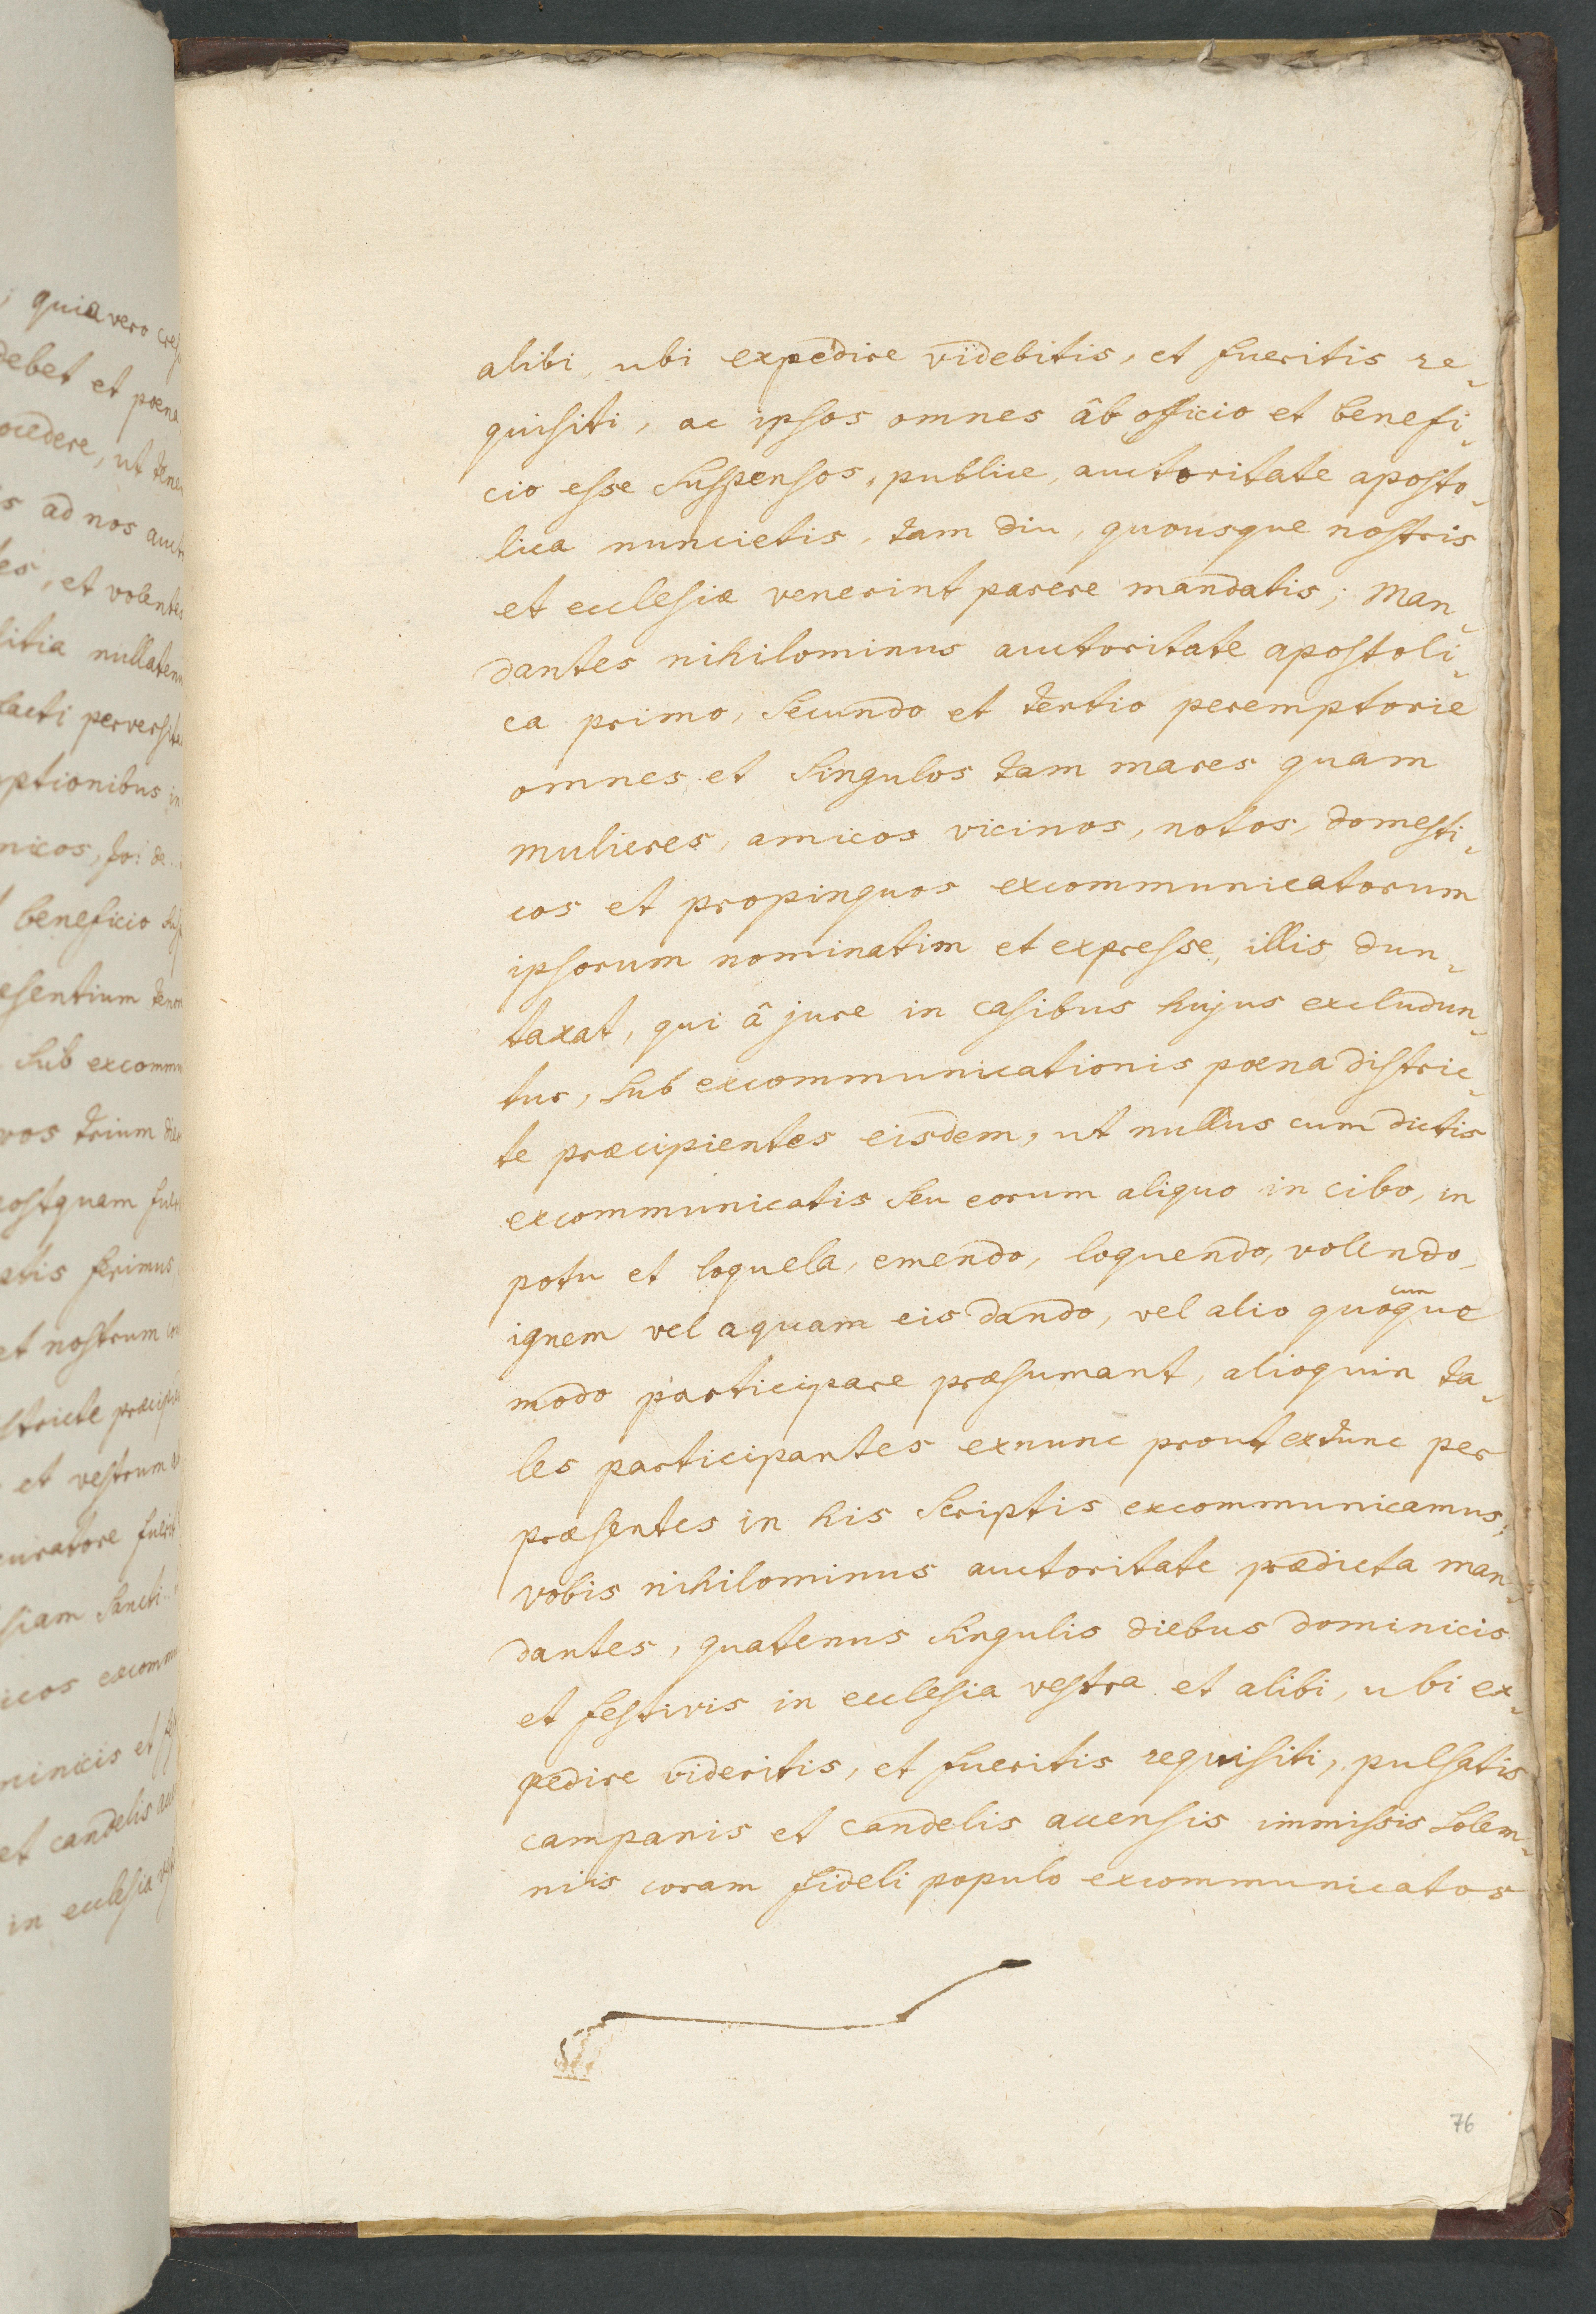 quia vero
debet et poena
ocedere, ut
s ad nos
es, et volentes
litia
facti
ptionibus in
nicos, Jo: de
beneficio
esentium
sub
vos trium
postquam
atis ferimus
et nostrum
stricte
et vestrum
curatore
siam sancti
icos
minicis et
et candelis
in ecclesia
alibi, ubi expedire videbitis, et fueritis re„
quisiti, ac ipsos omnes âb officio et benefi„
cio esse suspensos, publice, auctoritate aposto„
lica muncietis, tam diu, quousque nostris
et ecclesiæ venerint parere mandatis; Man„
dantes nihilominus auctoritate apostoli„
ca primo, secundo et tertio peremptorie
omnes et singulos tam mares quam
mulieres, amicos vicinos, notos, domesti„
cos et propinquos excommunicatorum
ipsorum nominatim et expresse, illis dun„
taxat, qui â jure in casibus hujus excludun„
tur, sub excommunicationis poena distric„
te præcipientes eisdem, ut nullus cum dictis
excommunicatis seu eorum aliquo in cibo, in
potu et loquela, emendo, loquendo, volendo,
ignem vel aquam eis dando, vel alio quocunque
modo participare præsumant, alioquin ta„
les participantes exnunc prout extunc per
præsentes in his scriptis excommunicamus;
vobis nihilominus auctoritate prædicta man„
dantes, quatenus singulis diebus dominicis
et festivis in ecclesia vestra et alibi, ubi ex„
pedire videritis, et fueritis requisiti, pulsatis
campanis et candelis accensis immissis solem„
niis coram fideli populo excommunicatos
76